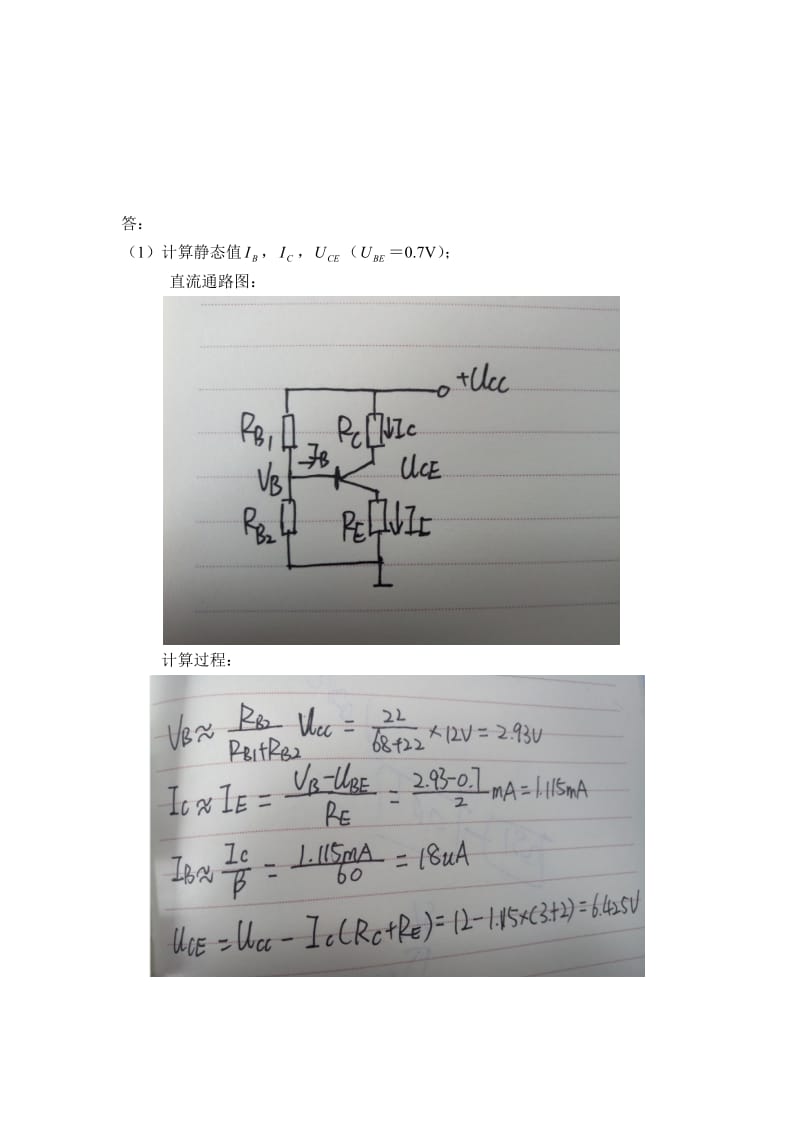 答：
（1）计算静态值 I_B ，I_C ，U_CE（U_BE＝0.7V）；
直流通路图：
+Ucc
R_B1
R_C ↓Ic
I_B
V_B
U_CE
R_B2
R_E ↓I_E
计算过程：
V_B≈ R_B2/(R_B1+R_B2) Ucc = 22/(68+22) ×12V = 2.93V
Ic≈I_E = (V_B-U_BE)/R_E = (2.93-0.7)/2 mA=1.115mA
I_B≈ Ic/β = 1.115mA/60 = 18uA
U_CE = Ucc - Ic(Rc+R_E)=12-1.115×(3+2)=6.425V